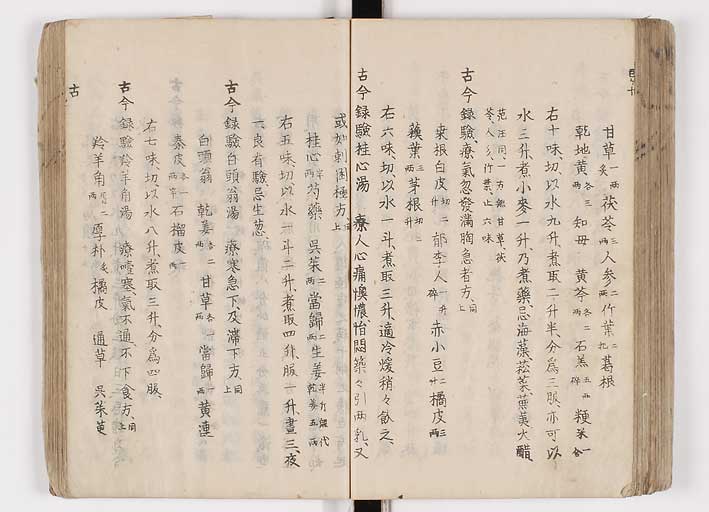 甘草一兩炙 茯苓三兩 人參二兩 竹葉二把 葛根
乾地黃各三兩 知母 黃芩各二兩 石羔五兩碎 粳米一合
右十味、切、以水九升、煮取二升半、分為三服、亦可以
水三升、煮小麥一升、乃煮藥、忌海藻菘菜蕪荑大醋、
范汪同、一方無甘草茯
苓、人參、竹葉、止六味
古今録驗療氣忽發滿胸急者方、同上
桒根白皮切二升 郁李人一升碎 赤小豆二升 橘皮三兩
蘓葉三兩 茅根切一升
右六味、切、以水一斗、煮取三升、適冷煖稍々飲之、
古今録驗桂心湯 療人心痛懊憹怡悶築々引兩乳、又
或如刺困極方、同上
桂心半兩 芍藥 吳茱二兩 當歸二兩 生姜半斤無代乾姜五兩
右五味、切、以水一斗二升、煮取四升、服一升、晝三夜
一良有驗、忌生葱
古今録驗白頭翁湯 療寒急下及滯下方、同上
白頭翁 乾姜各二兩 甘草 當歸各一兩 黃連
秦皮各一兩半 石榴皮一兩
右七味、切、以水八升、煮取三升、分為四服、
古今録驗羚羊角湯 療噎塞氣不通、不下食方、同上
羚羊角二兩 厚朴炙 橘皮 通草 吳茱萸
古